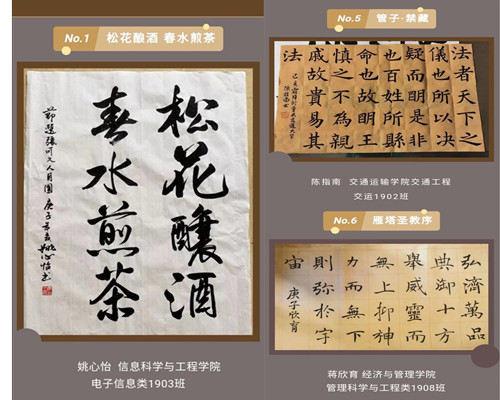 No.1 松花酿酒 春水煎茶
松花釀酒
春水煎茶
節選張可久人月圓 庚子
姚心怡书
姚心怡 信息科学与工程学院
电子信息类1903班
No.5 管子·禁藏
法者天下之
儀也所以决
疑而明是非
也百姓所縣
命也故明王
慎之不為親
戚故貴易其
法
陈指南 交通运输学院交通工程
交运1902班
No.6 雁塔圣教序
弘濟萬品
典御十方
舉威靈而
無上抑神
力而無下
則弥於宇
宙
庚子欣育
蒋欣育 经济与管理学院
管理科学与工程类1908班